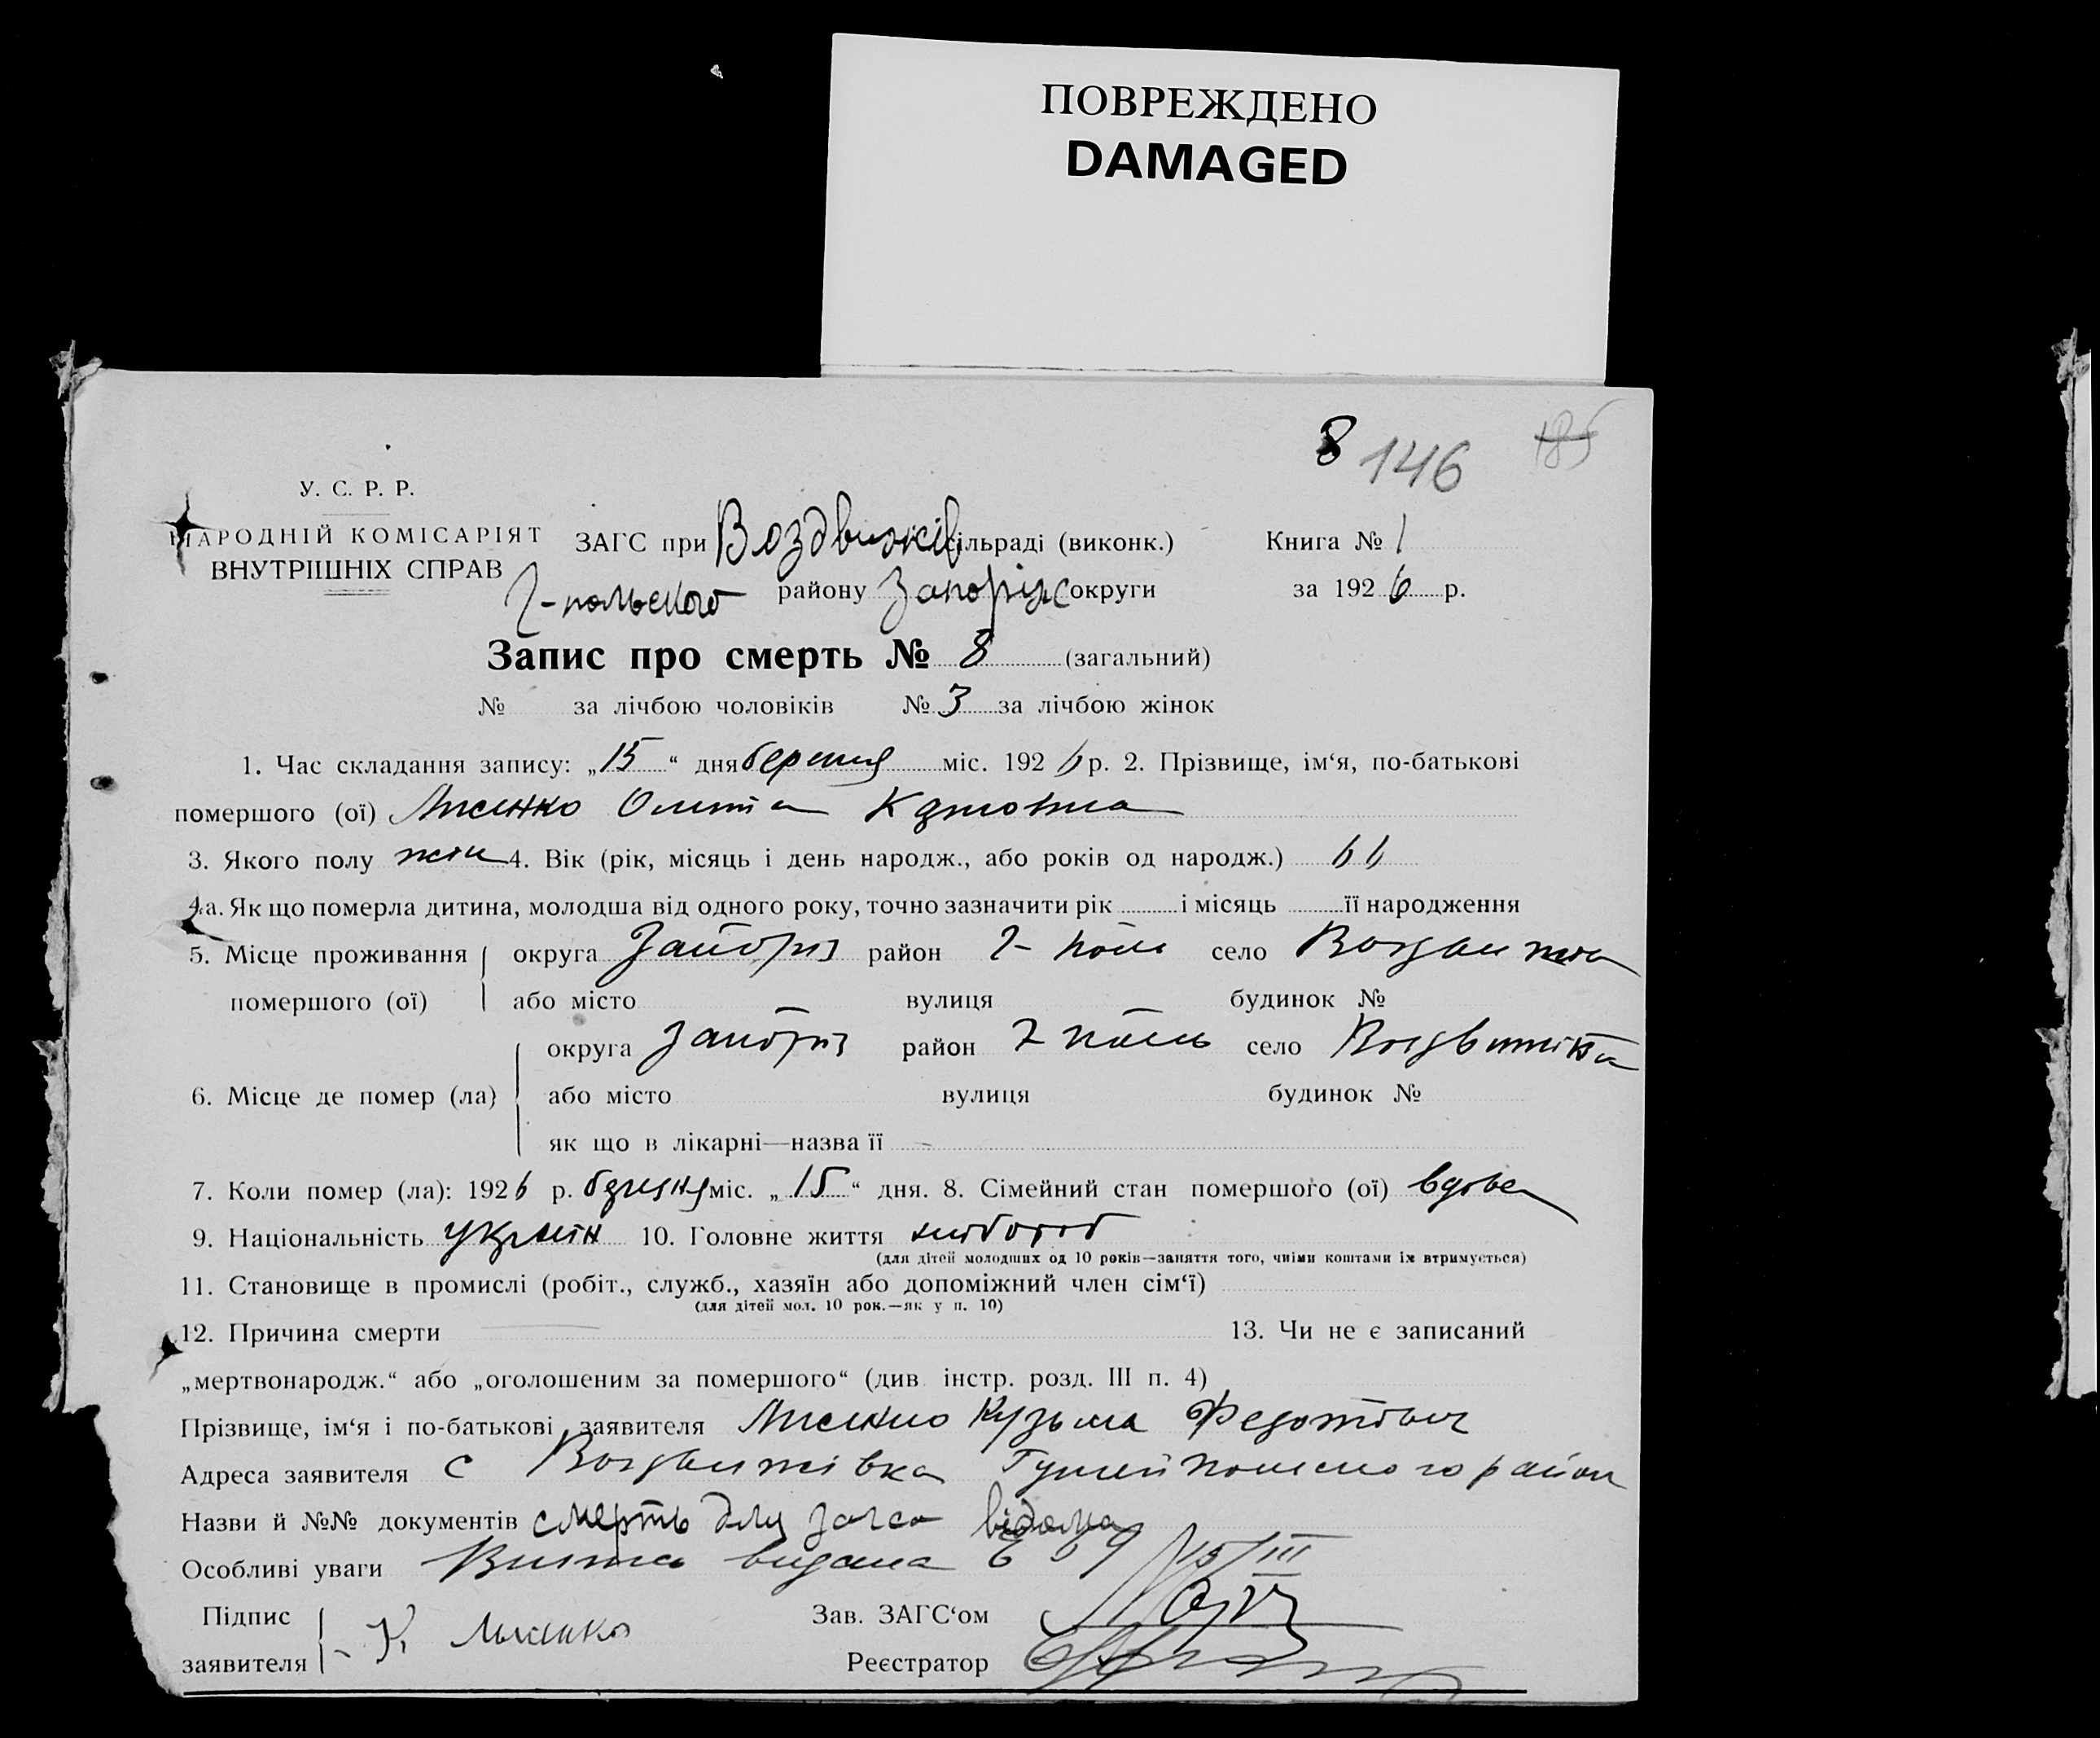 ПОВРЕЖДЕНО
DAMAGED
8 146 185
У. С. Р. Р.
НАРОДНІЙ КОМІСАРІЯТ
ВНУТРІШНІХ СПРАВ
ЗАГС при Воздвижків сільраді (виконк.) Книга № 1
Г-польського району Запоріж округи за 1926 р.
Запис про смерть № 8 (загальний)
№ за лічбою чоловіків № 3 за лічбою жінок
1. Час складання запису: „15“ дня березня міс. 1926 р. 2. Прізвище, ім‘я, по-батькові
помершого (ої) Лисенко
3. Якого полу жін 4. Вік (рік, місяць і день народж., або років од народж.) 66
4а. Як що померла дитина, молодша від одного року, точно зазначити рік і місяць її народження
5. Місце проживання округа Запоріз район Г-поль село
помершого (ої) або місто вулиця будинок №
округа Запоріз район Г поль село Воздвижівка
6. Місце де помер (ла) або місто вулиця будинок №
як що в лікарні—назва її
7. Коли помер (ла): 1926 р. березня міс. „15“ дня. 8. Сімейний стан помершого (ої) вдова
9. Національність україн 10. Головне життя хлібороб
(для дітей молодших од 10 років—заняття того, чиїми коштами їх втримується)
11. Становище в промислі (робіт., служб., хазяїн або допоміжний член сім‘ї)
(для дітей мол. 10 рок.—як у п. 10)
12. Причина смерти 13. Чи не є записаний
„мертвонародж.“ або „оголошеним за помершого“ (див. інстр. розд. III п. 4)
Прізвище, ім‘я і по-батькові заявителя Лисенко Кузьма Федотович
Адреса заявителя с Воздвижівка Гуляйпольского район
Назви й №№ документів смерть для загса відома
Особливі уваги видана 15/III
Підпис Зав. ЗАГС‘ом
заявителя К Лисенко Реєстратор